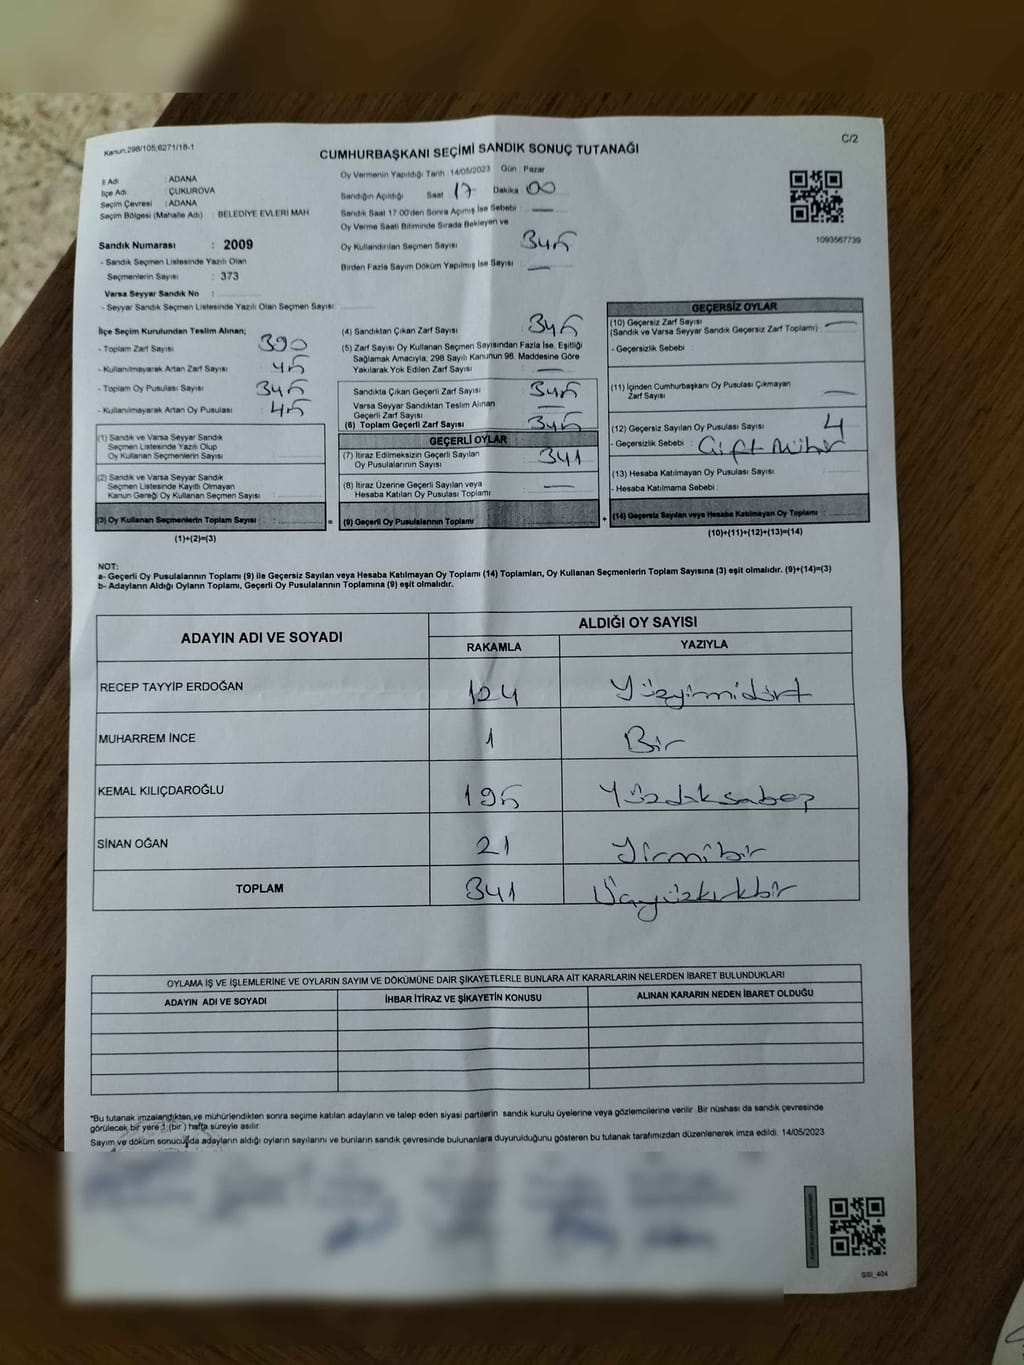 Kanun:298/105;6271/18-1
C/2
CUMHURBAŞKANI SEÇİMİ SANDIK SONUÇ TUTANAĞI
İl Adı : ADANA
İlçe Adı : ÇUKUROVA
Seçim Çevresi : ADANA
Seçim Bölgesi (Mahalle Adı) : BELEDİYE EVLERİ MAH.
Sandık Numarası : 2009
- Sandık Seçmen Listesinde Yazılı Olan
Seçmenlerin Sayısı : 373
Varsa Seyyar Sandık No :
- Seyyar Sandık Seçmen Listesinde Yazılı Olan Seçmen Sayısı :
Oy Vermenin Yapıldığı Tarih : 14/05/2023 Gün : Pazar
Sandığın Açıldığı Saat 17 Dakika : 00
Sandık Saat 17:00'den Sonra Açımış İse Sebebi :
Oy Verme Saati Bitiminde Sırada Bekleyen ve
Oy Kullandırılan Seçmen Sayısı 345
Birden Fazla Sayım Döküm Yapılmış İse Sayısı :
1093567739
İlçe Seçim Kurulundan Teslim Alınan;
- Toplam Zarf Sayısı : 390
- Kullanılmayarak Artan Zarf Sayısı : 45
- Toplam Oy Pusulası Sayısı : 345
- Kullanılmayarak Artan Oy Pusulası : 45
(1) Sandık ve Varsa Seyyar Sandık
Seçmen Listesinde Yazılı Olup
Oy Kullanan Seçmenlerin Sayısı :
(2) Sandık ve Varsa Seyyar Sandık
Seçmen Listesinde Kayıtlı Olmayan
Kanun Gereği Oy Kullanan Seçmen Sayısı :
(3) Oy Kullanan Seçmenlerin Toplam Sayısı :
(1)+(2)=(3)
(4) Sandıktan Çıkan Zarf Sayısı : 345
(5) Zarf Sayısı Oy Kullanan Seçmen Sayısından Fazla İse, Eşitliği
Sağlamak Amacıyla, 298 Sayılı Kanunun 98. Maddesine Göre
Yakılarak Yok Edilen Zarf Sayısı :
Sandıkta Çıkan Geçerli Zarf Sayısı : 345
Varsa Seyyar Sandıktan Teslim Alınan
Geçerli Zarf Sayısı :
(6) Toplam Geçerli Zarf Sayısı : 345
GEÇERLİ OYLAR
(7) İtiraz Edilmeksizin Geçerli Sayılan
Oy Pusulalarının Sayısı : 341
(8) İtiraz Üzerine Geçerli Sayılan veya
Hesaba Katılan Oy Pusulası Toplamı :
= (9) Geçerli Oy Pusulalarının Toplamı :
GEÇERSİZ OYLAR
(10) Geçersiz Zarf Sayısı
(Sandık ve Varsa Seyyar Sandık Geçersiz Zarf Toplamı) :
- Geçersizlik Sebebi :
(11) İçinden Cumhurbaşkanı Oy Pusulası Çıkmayan
Zarf Sayısı :
(12) Geçersiz Sayılan Oy Pusulası Sayısı : 4
- Geçersizlik Sebebi : Çift Mühür
(13) Hesaba Katılmayan Oy Pusulası Sayısı :
- Hesaba Katılmama Sebebi :
+ (14) Geçersiz Sayılan veya Hesaba Katılmayan Oy Toplamı :
(10)+(11)+(12)+(13)=(14)
NOT:
a- Geçerli Oy Pusulalarının Toplamı (9) ile Geçersiz Sayılan veya Hesaba Katılmayan Oy Toplamı (14) Toplamları, Oy Kullanan Seçmenlerin Toplam Sayısına (3) eşit olmalıdır. (9)+(14)=(3)
b- Adayların Aldığı Oyların Toplamı, Geçerli Oy Pusulalarının Toplamına (9) eşit olmalıdır.
ADAYIN ADI VE SOYADI
ALDIĞI OY SAYISI
RAKAMLA YAZIYLA
RECEP TAYYİP ERDOĞAN 124 Yüzyirmidört
MUHARREM İNCE 1 Bir
KEMAL KILIÇDAROĞLU 195 Yüzdoksabeş
SİNAN OĞAN 21 Yirmibir
TOPLAM 341 Üçyüzkırkbir
OYLAMA İŞ VE İŞLEMLERİNE VE OYLARIN SAYIM VE DÖKÜMÜNE DAİR ŞİKAYETLERLE BUNLARA AİT KARARLARIN NELERDEN İBARET BULUNDUKLARI
ADAYIN ADI VE SOYADI İHBAR İTİRAZ VE ŞİKAYETİN KONUSU ALINAN KARARIN NEDEN İBARET OLDUĞU
*Bu tutanak imzalandıktan ve mühürlendikten sonra seçime katılan adayların ve talep eden siyasi partilerin sandık kurulu üyelerine veya gözlemcilerine verilir. Bir nüshası da sandık çevresinde
görülecek bir yere 1 (bir) hafta süreyle asılır.
Sayım ve döküm sonucuda adayların aldığı oyların sayılarını ve bunların sandık çevresinde bulunanlara duyurulduğunu gösteren bu tutanak tarafımızdan düzenlenerek imza edildi. 14/05/2023